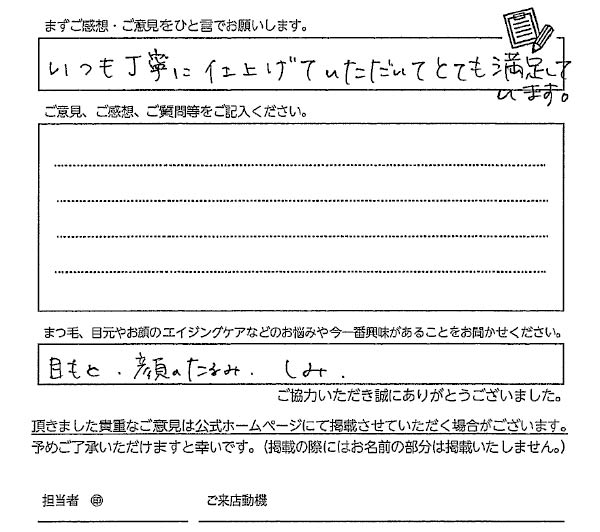 まずご感想・ご意見をひと言でお願いします。
いつも丁寧に仕上げていただいてとても満足して
います。
ご意見、ご感想、ご質問等をご記入ください。
まつ毛、目元やお顔のエイジングケアなどのお悩みや今一番興味があることをお聞かせください。
目もと、顔のたるみ、しみ、
ご協力いただき誠にありがとうございました。
頂きました貴重なご意見は公式ホームページにて掲載させていただく場合がございます。
予めご了承いただけますと幸いです。（掲載の際にはお名前の部分は掲載いたしません。）
担当者 ㊞ ご来店動機